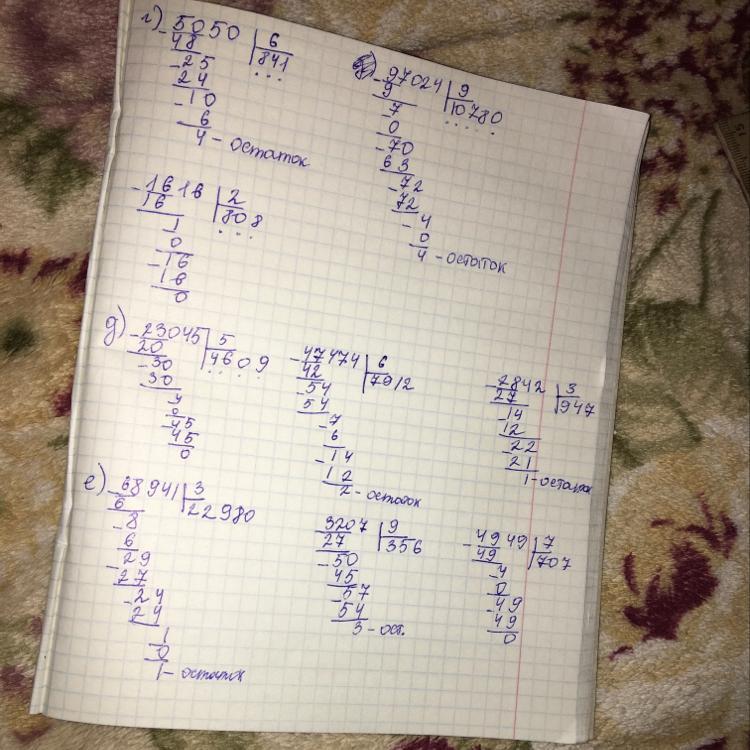 г) 5050 | 6
- 48 | 841
- 25
24
- 10
6
4 - остаток
- 97024 | 9
9 | 10780
7
0
- 70
63
- 72
72
- 4
0
4 - остаток
- 1616 | 2
16 | 808
1
0
- 16
16
0
д) - 23045 | 5
20 | 4609
- 30
30
4
0
- 45
45
0
- 47474 | 6
42 | 7912
- 54
54
- 7
6
- 14
12
2 - остаток
- 2842 | 3
27 | 947
- 14
12
- 22
21
1 - остаток
е) - 68941 | 3
6 | 22980
- 8
6
- 29
27
- 24
24
1
0
1 - остаток
- 3207 | 9
27 | 356
- 50
45
- 57
54
3 - ост.
- 4949 | 7
49 | 707
- 4
0
- 49
49
0